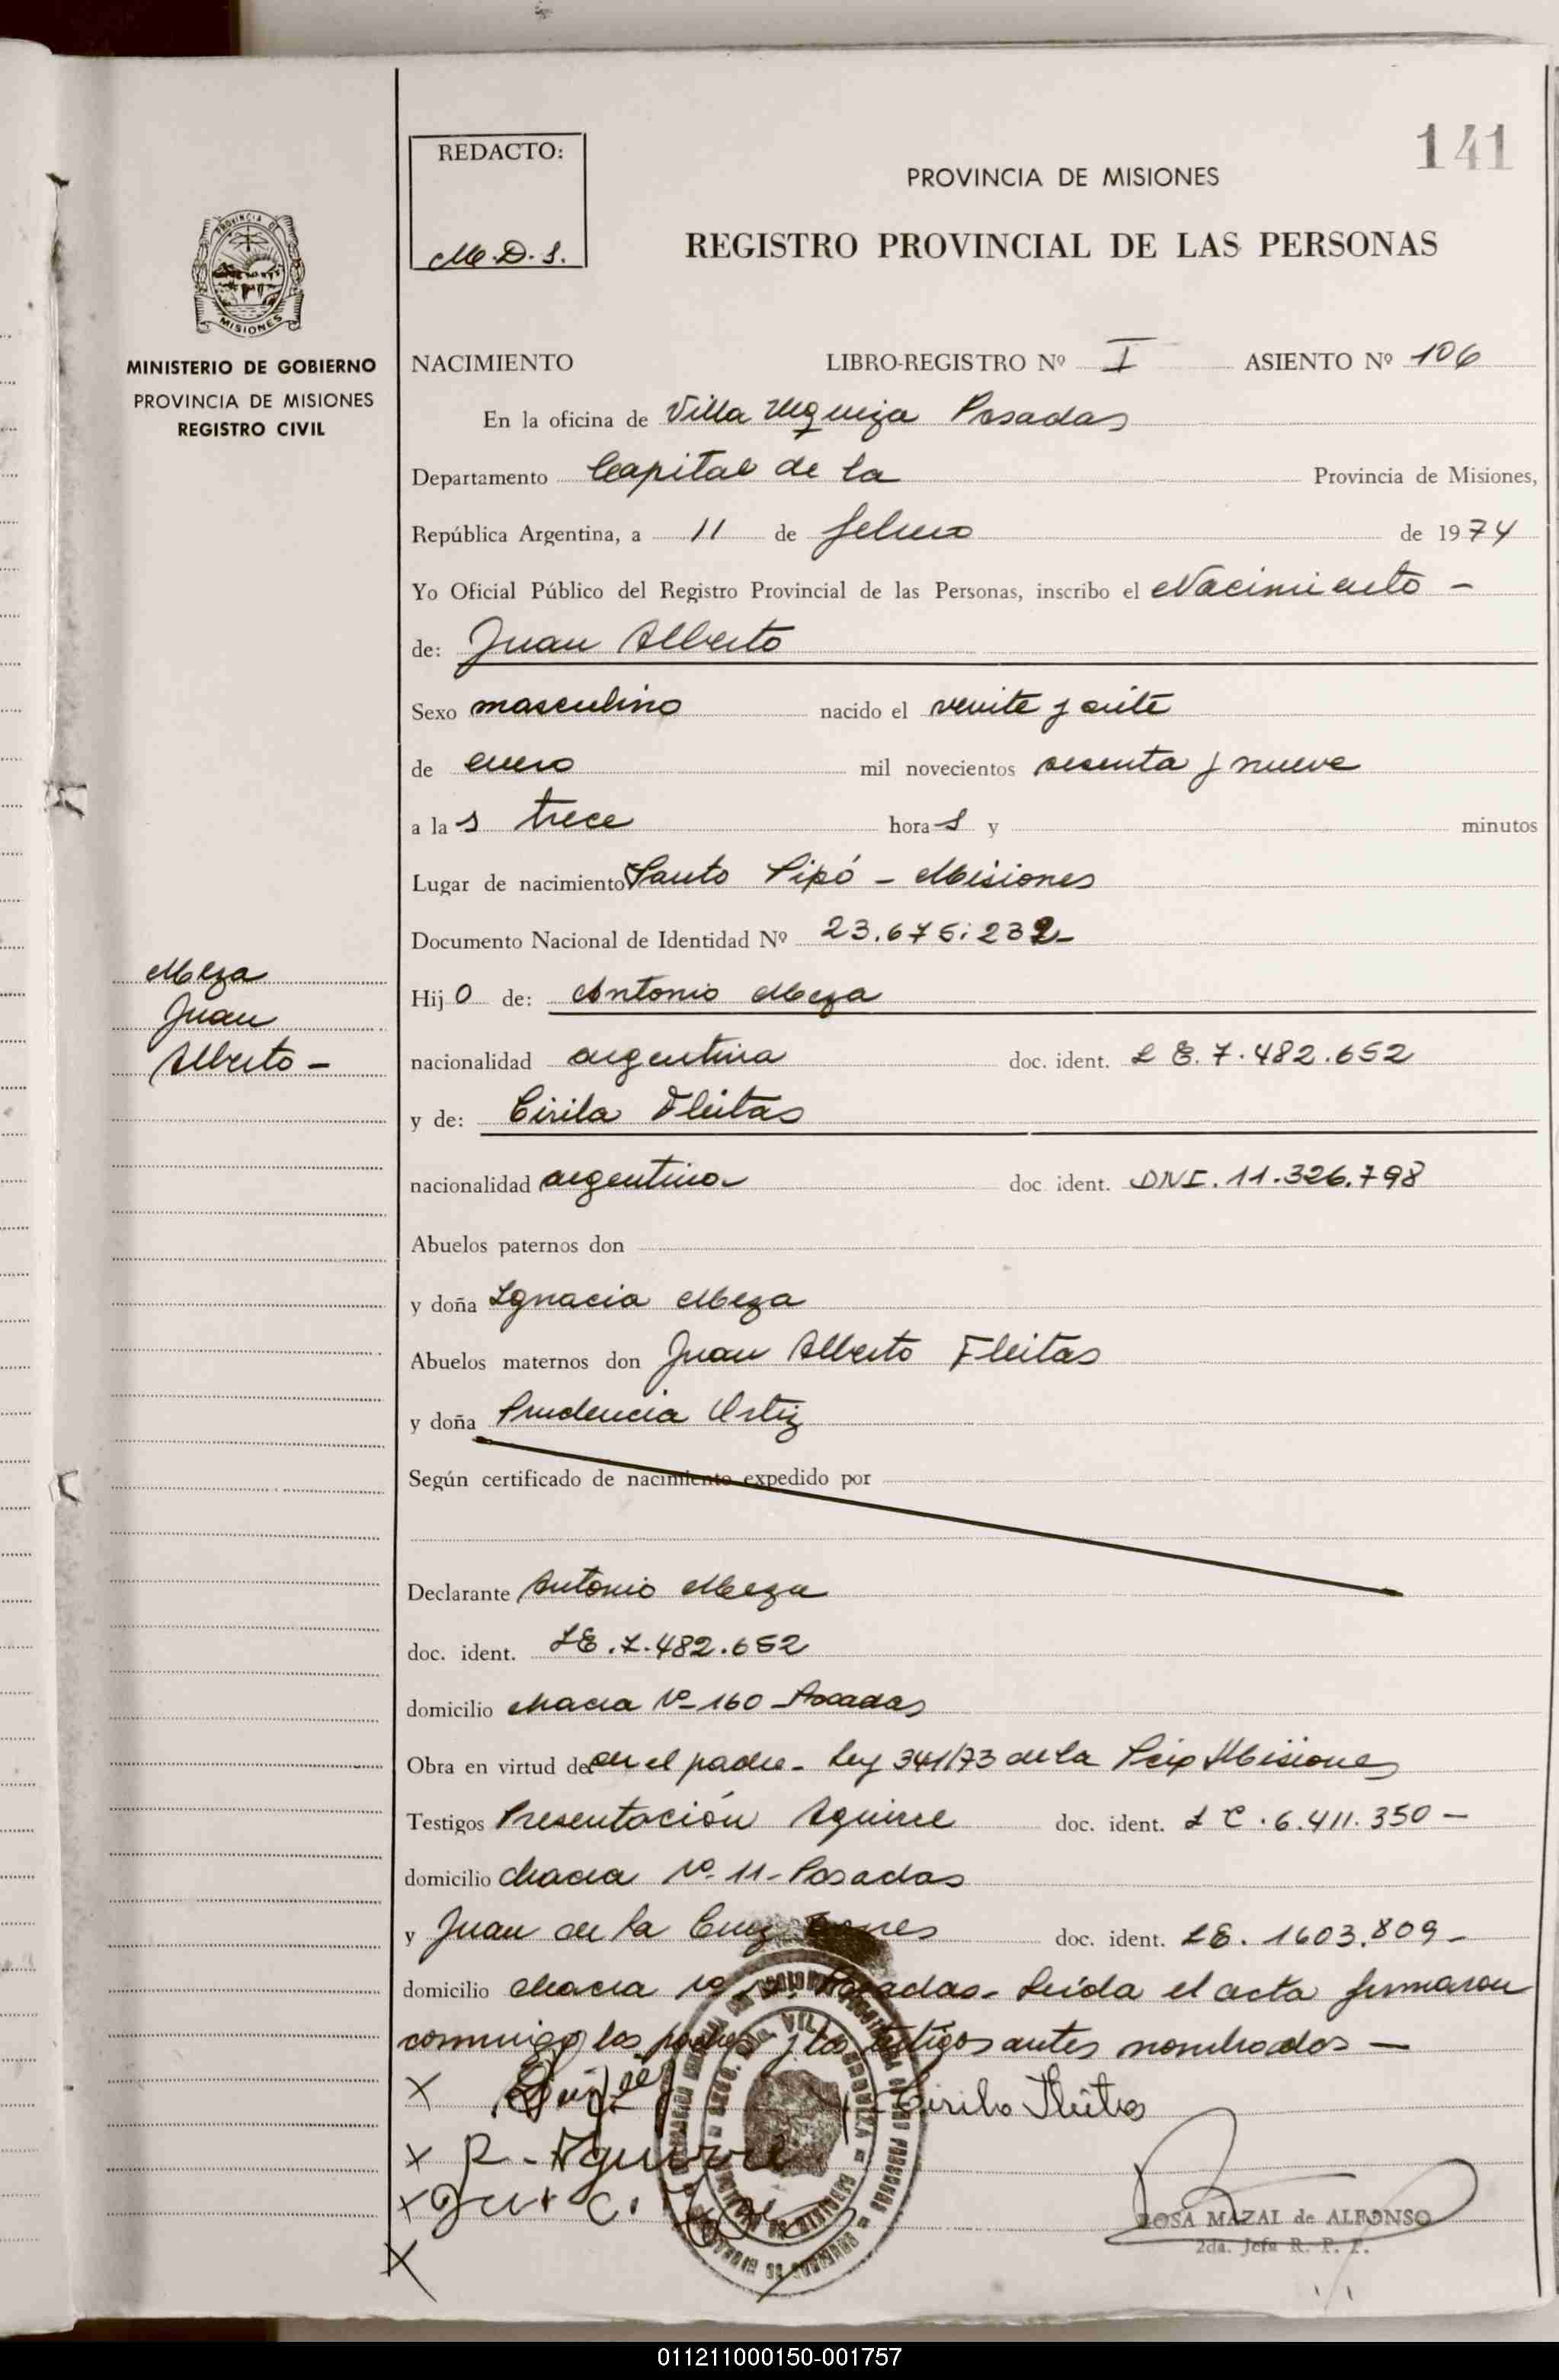 141
REDACTO:
M.D.S.
PROVINCIA DE MISIONES
REGISTRO PROVINCIAL DE LAS PERSONAS
PROVINCIA DE
MISIONES
MINISTERIO DE GOBIERNO
PROVINCIA DE MISIONES
REGISTRO CIVIL
NACIMIENTO LIBRO-REGISTRO Nº I ASIENTO Nº 106
En la oficina de Villa Urquiza Posadas
Departamento Capital de la Provincia de Misiones,
República Argentina, a 11 de febrero de 1974
Yo Oficial Público del Registro Provincial de las Personas, inscribo el Nacimiento -
de: Juan Alberto
Sexo masculino nacido el veinte y siete
de enero mil novecientos sesenta y nueve
a la s trece hora s y minutos
Lugar de nacimiento Santo Pipó - Misiones
Documento Nacional de Identidad Nº 23.675.232-
Meza
Juan
Alberto -
Hij o de: Antonio Meza
nacionalidad argentina doc. ident. L E. 7.482.652
y de: Cirila Fleitas
nacionalidad argentina doc ident. DNI. 11.326.798
Abuelos paternos don
y doña Ignacia Meza
Abuelos maternos don Juan Alberto Fleitas
y doña Prudencia Ortiz
Según certificado de nacimiento expedido por
Declarante Antonio Meza
doc. ident. LE. 7.482.652
domicilio chacra Nº 160 - Posadas
Obra en virtud de ser el padre - Ley 341/73 de la Pcia Misiones
Testigos Presentación Aguirre doc. ident. L C. 6.411.350 -
domicilio chacra Nº 11 - Posadas
y Juan de la Cruz doc. ident. LE. 1603.809 -
domicilio chacra Nº Posadas - Leída el acta firmaron
conmigo los padres y los testigos antes nombrados -
X
X Cirila Fleitas
X P. Aguirre
X Juan C.
X
ROSA MAZAL de ALFONSO
2da. Jefa R. P. P.
011211000150-001757